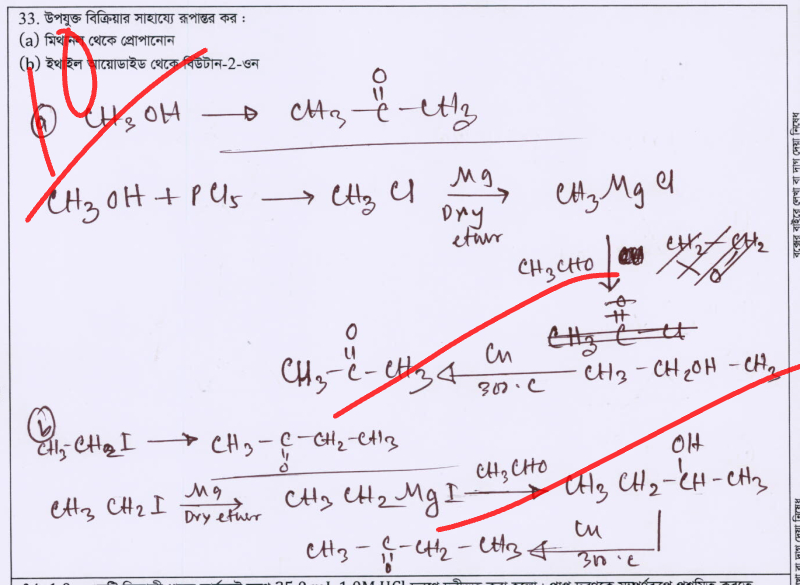 33. উপযুক্ত বিক্রিয়ার সাহায্যে রূপান্তর কর :
(a) মিথানল থেকে প্রোপানোন
(b) ইথাইল আয়োডাইড থেকে বিউটান-2-ওন
10
(a) CH3OH ⟶ CH3 – C(=O) – CH3
CH3OH + PCl5 ⟶ CH3Cl Mg ⟶ Dry ether CH3MgCl
CH3CHO ↓
CH3 – C(=O) – CH3 ⟵ Cu 300°C CH3 – CH2OH – CH3
(b) CH3-CH2I ⟶ CH3 – C(=O) – CH2 – CH3
CH3CH2I Mg ⟶ Dry ether CH3CH2MgI CH3CHO ⟶ CH3CH2 – CH(OH) – CH3
CH3 – C(=O) – CH2 – CH3 ⟵ Cu 300°C
বক্সের বাইরে লেখা বা দাগ দেয়া নিষেধ